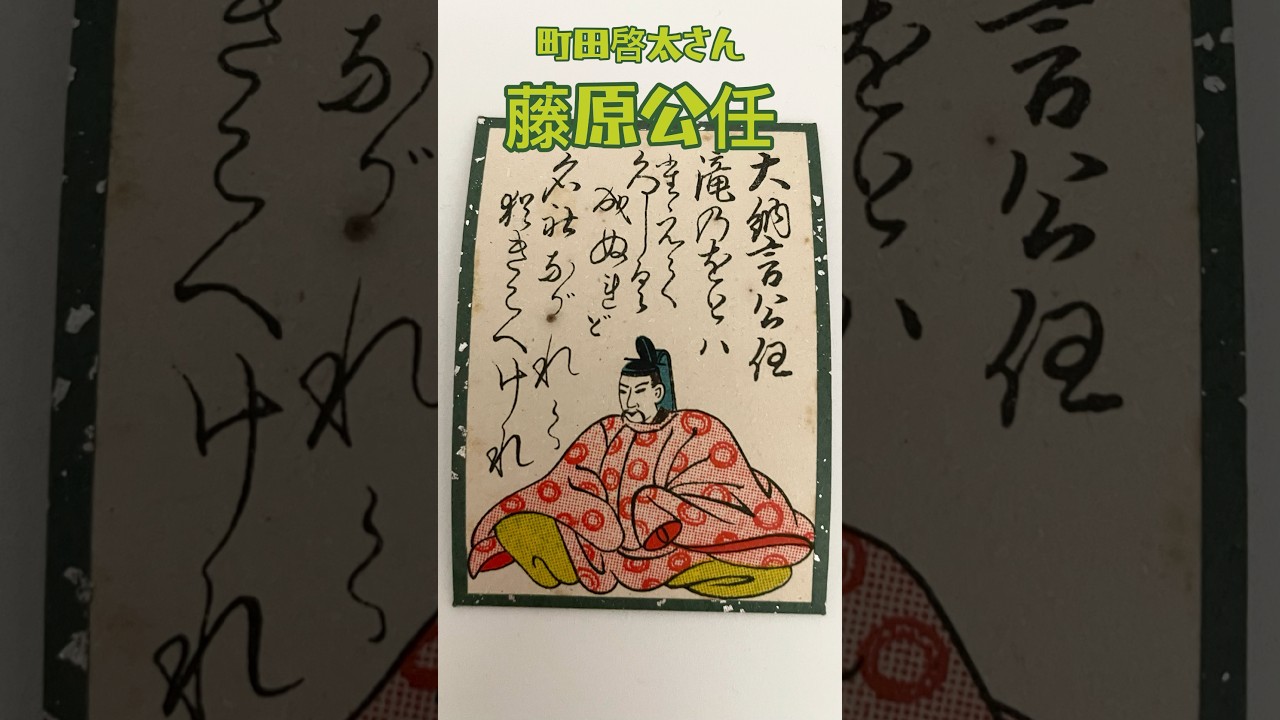 町田啓太さん
藤原公任
大納言公任
滝乃をとハ
堂えて
久しく
成ぬれど
名社ながれて
猶きこへけれ